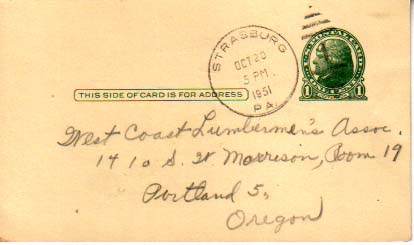 STRASBURG
OCT 20
5 PM
1951
PA.
THIS SIDE OF CARD IS FOR ADDRESS
1 1
West Coast Lumbermen's Assoc.
1410 S. W Morrison, Room 19
Portland 5,
Oregon